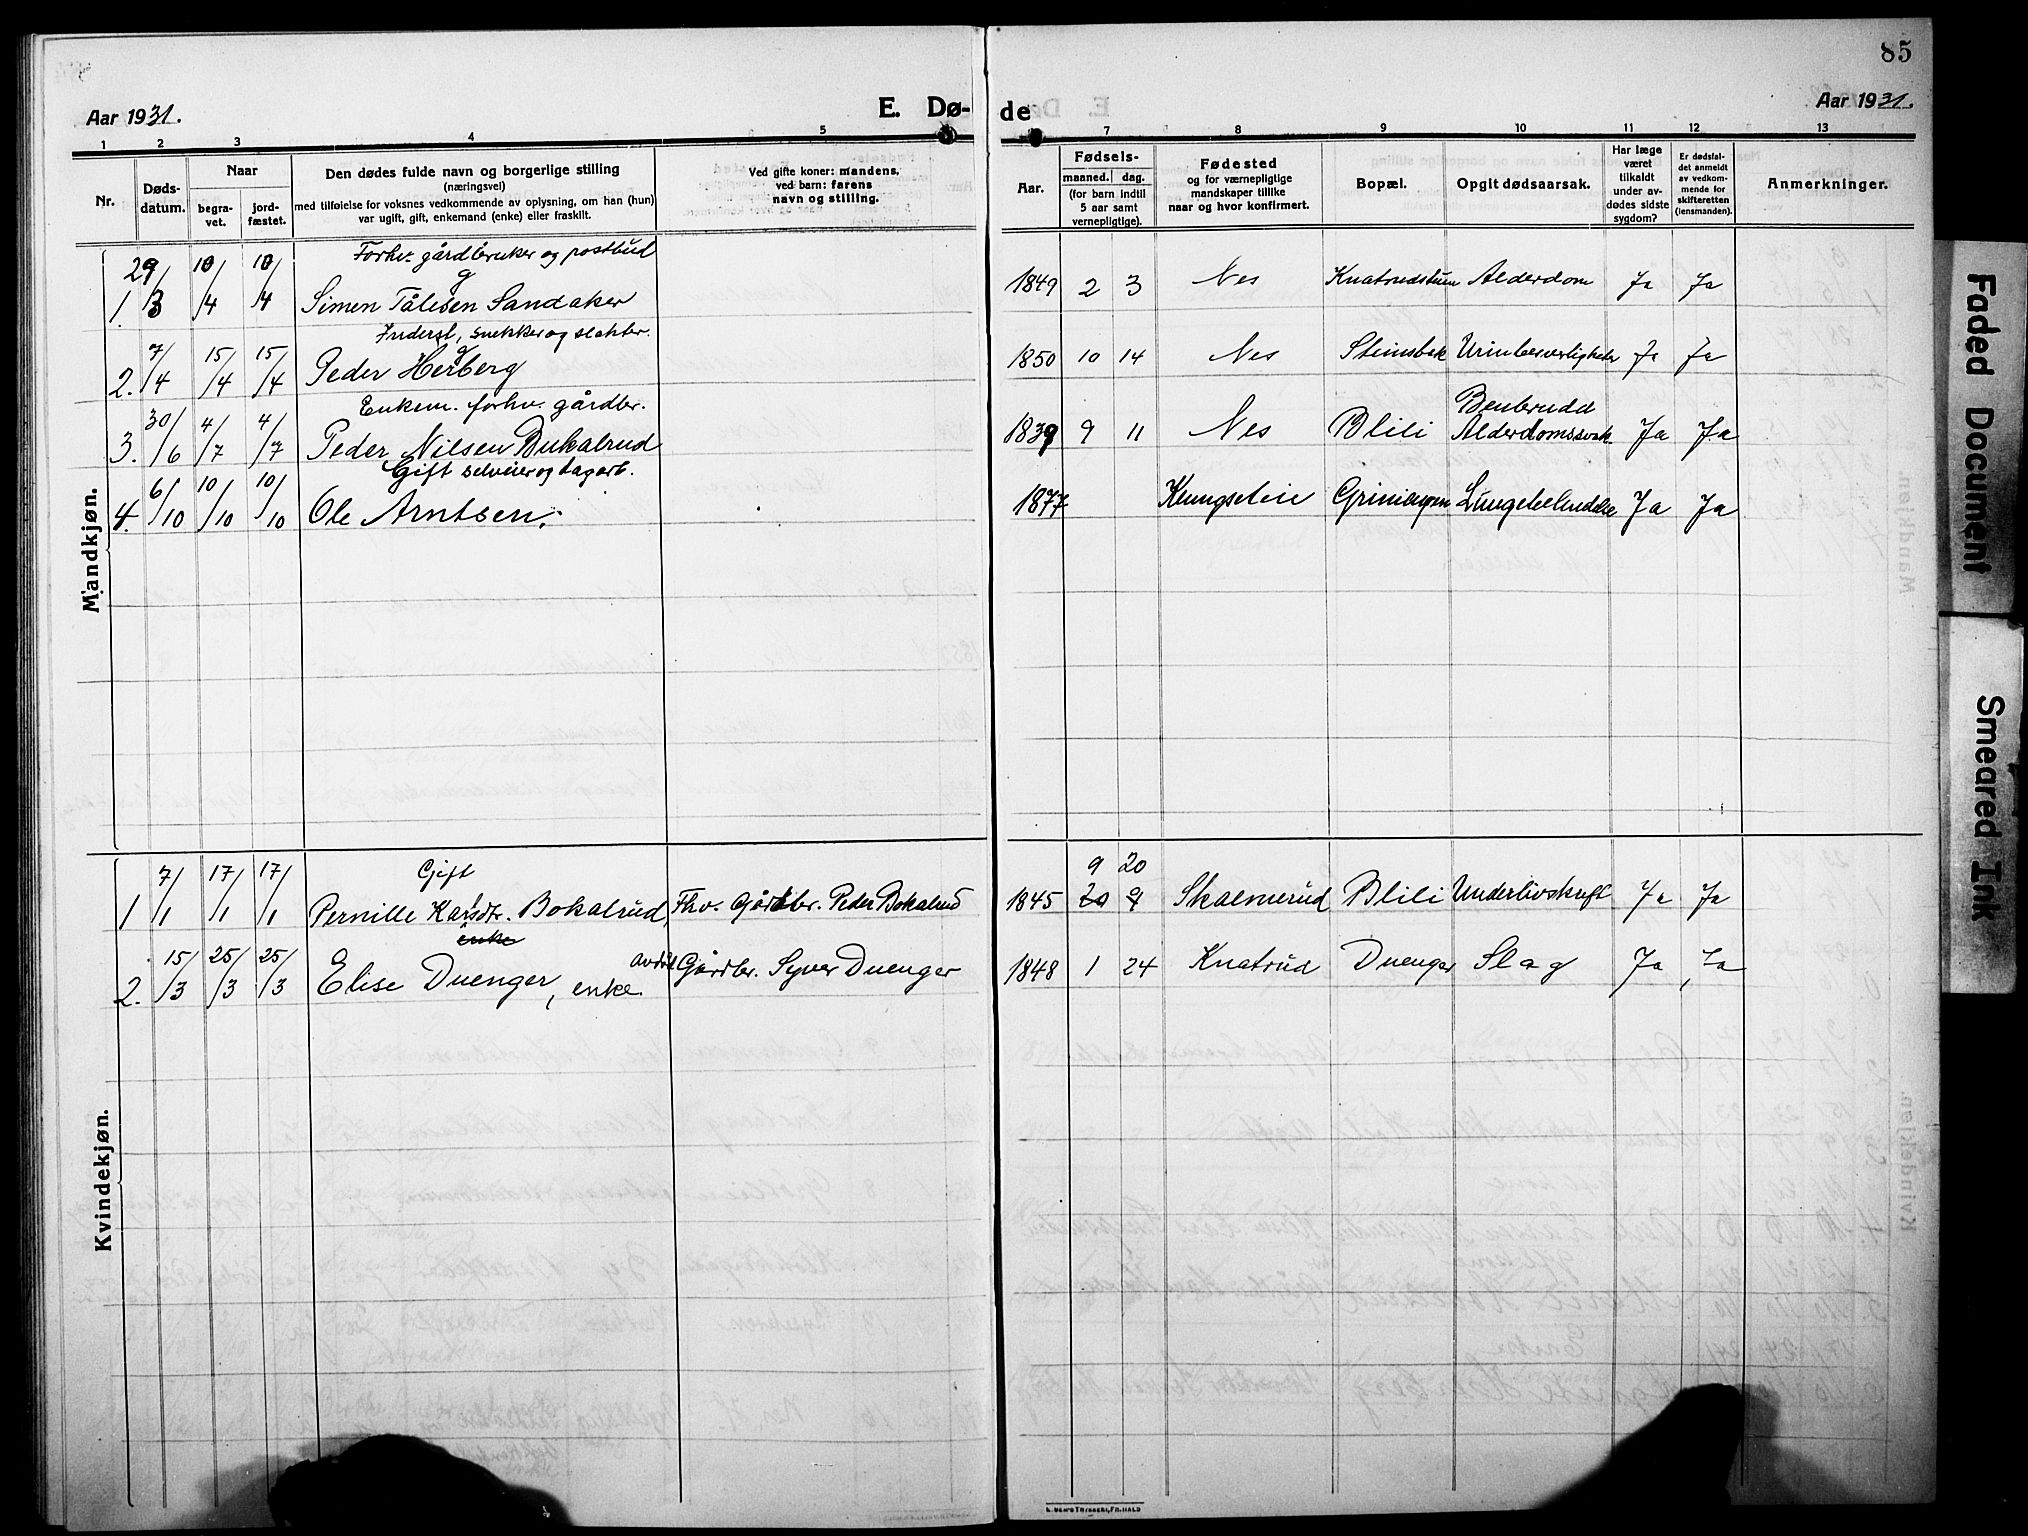 85
Aar 1931.
E. Dø-
de
Aar 1931.
1 2 3 4 5
7 8 9 10 11 12 13
Nr.
Døds-
datum.
Naar
begra-
vet.
jord-
fæstet.
Den dødes fulde navn og borgerlige stilling
(næringsvei)
med tilføielse for voksnes vedkommende av oplysning, om han (hun)
var ugift, gift, enkemand (enke) eller fraskilt.
Ved gifte koner: mandens,
ved barn: farens
navn og stilling.
Aar.
Fødsels-
maaned. dag.
(for barn indtil
5 aar samt
vernepligtige).
Fødested
og for værnepligtige
mandskaper tillike
naar og hvor konfirmert.
Bopæl.
Opgit dødsaarsak.
Har læge
været
tilkaldt
under av-
dødes sidste
sygdom?
Er dødsfal-
det anmeldt
av vedkom-
mende for
skifteretten
(lensmanden).
Anmerkninger.
Mandkjøn.
Forhv. gårdbruker og postbud
g
1. 29/3 10/4 10/4 Simen Tålesen Sandaker 1849 2 3 Nes Knatrudstuen Alderdom Ja Ja
Inderst, snekker og slakter.
g
2. 7/4 15/4 15/4 Peder Herberg 1850 10 14 Nes Steinsbek Urinbesverligheter Ja Ja
Enkem. forhv. gårdbr.
3. 30/6 4/7 4/7 Peder Nilsen Bukalrud 1839 9 11 Nes Blili Benbrudd
Alderdomssvak Ja Ja
Gift selveier og dagarb.
4. 6/10 10/10 10/10 Ole Arntsen. 1877 Grinihagen Ja Ja
Kvindekjøn.
Gift
9 20
1 7/1 17/1 17/1 Pernille Karsdtr. Bokalrud, Fhv. Gårdbr. Peder Bokalrud 1845 20 9 Skalmerud Blili Underlivskreft Ja Ja
enke
2. 15/3 25/3 25/3 Elise Duenger, enke avdøde Gårdbr. Syver Duenger 1848 1 24 Knatrud Duenger Slag Ja Ja
Faded Document
Smeared Ink